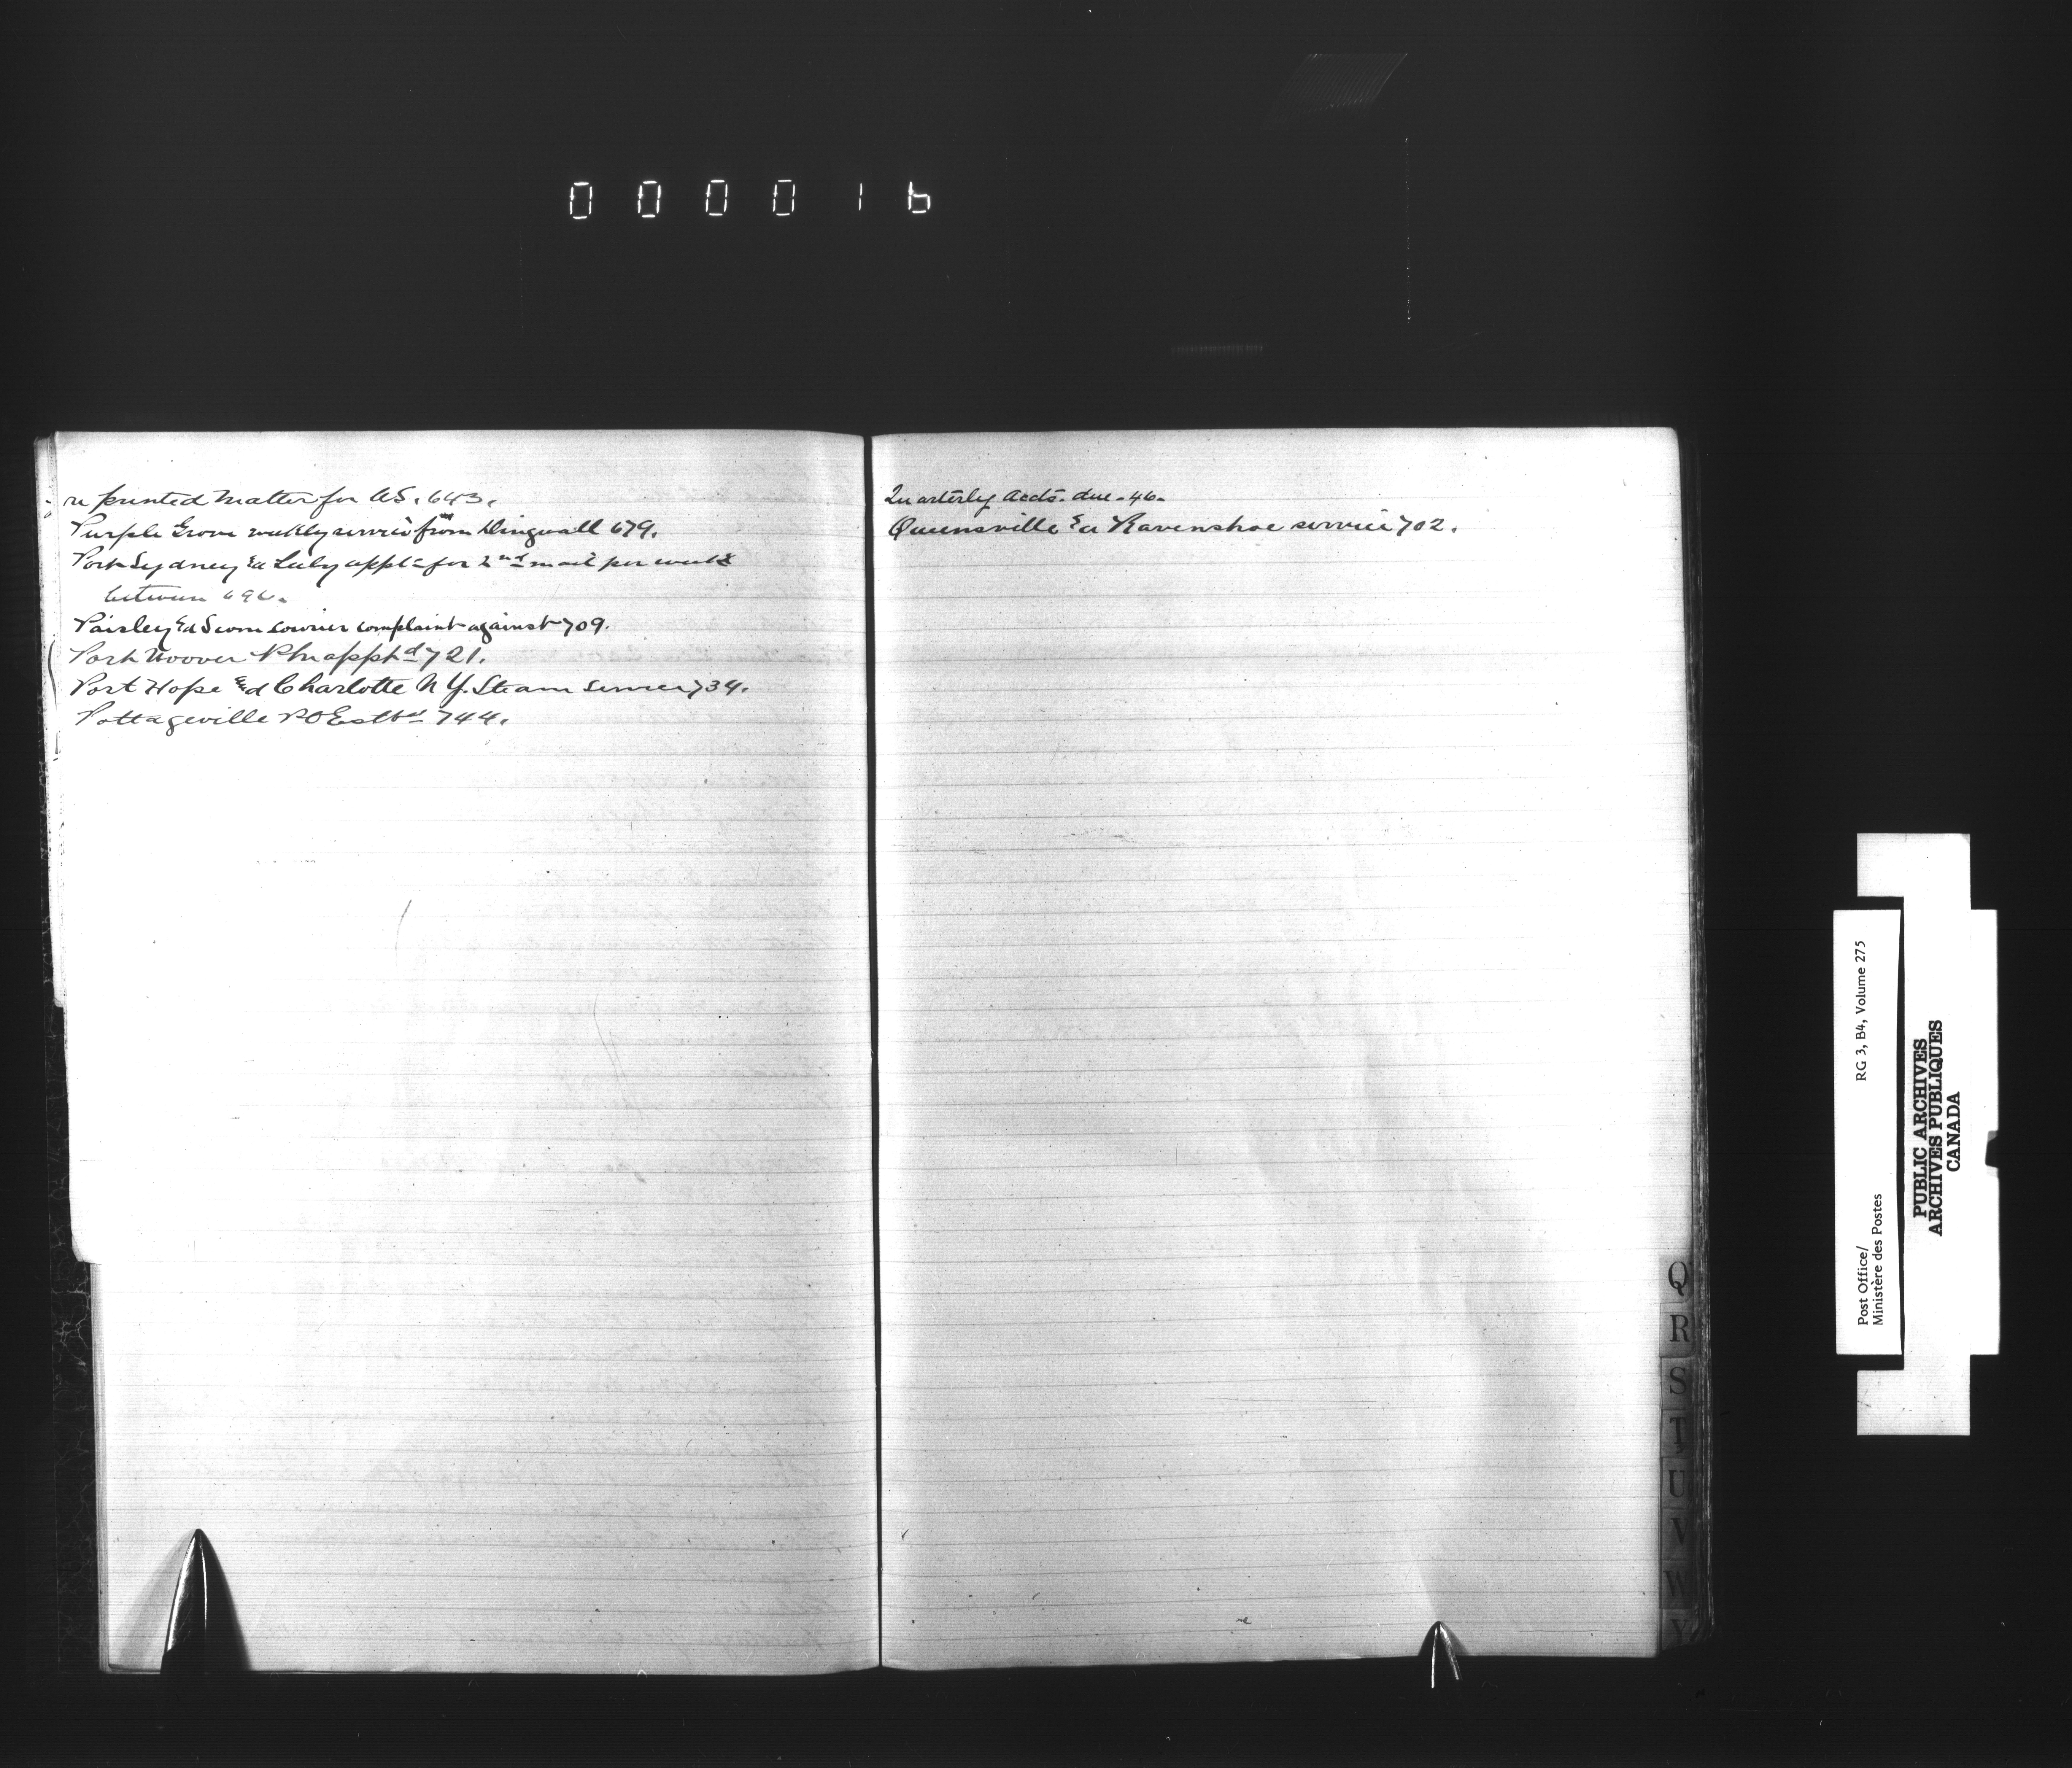 000016
re printed matter for US. 643.
Purple Grove weekly service from Dingwall 679.
Port Sydney &a Luly applt for 2nd mail per week
between 696.
Paisley &d Scone courier complaint against 709.
Port Hoover PM apptd 721.
Port Hope &d Charlotte N.Y. Steam Service 734.
Pottageville PO Estbd 744.
Quarterly Accts. due. 46.
Queensville &a Ravenshoe service 702.
Q
R
S
T
U
V
W
Y
Post Office/
Ministère des Postes
RG 3, B4, Volume 275
PUBLIC ARCHIVES
ARCHIVES PUBLIQUES
CANADA